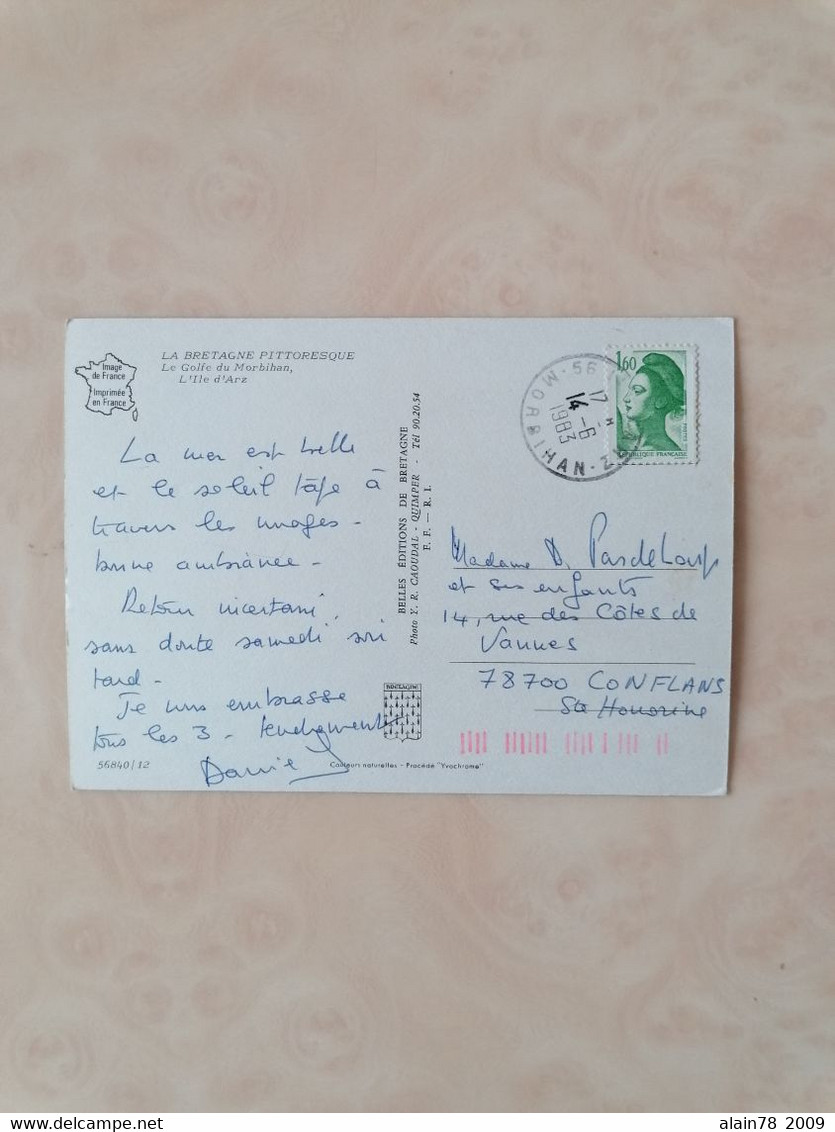 Image
de France
Imprimée
en France
LA BRETAGNE PITTORESQUE
Le Golfe du Morbihan,
L'Ile d'Arz
La mer est belle
et le soleil tape à
travers les nuages -
bonne ambiance -
Retour incertain,
sans doute samedi soir
tard -
Je vous embrasse
tous les 3 - tendrement
Daniel
56840/12
BELLES ÉDITIONS DE BRETAGNE
Photo Y. R. CAOUDAL - QUIMPER - Tél 90.20.54
F. F. — R. I.
BRETAGNE
Couleurs naturelles - Procédé "Yvochrome"
56 - MORBIHAN
17 H
14 - 6
1983
1,60
REPUBLIQUE FRANÇAISE
Madame D. PasdeLoup
et ses enfants
14, rue des Côtes de
Vannes
78700 CONFLANS
Ste Honorine
alain78 2009